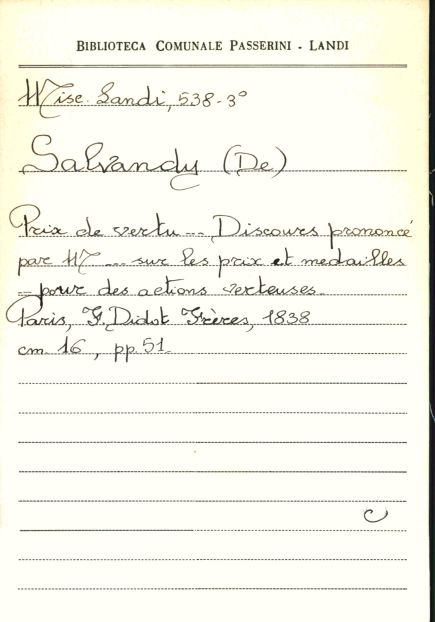 BIBLIOTECA COMUNALE PASSERINI - LANDI
Misc. Landi, 538-3°
Salvandy (De)
Prix de vertu --- Discours prononcé
par M --- sur les prix et medailles
-- pour des actions verteuses.
Paris, F. Didot Frères, 1838
cm. 16, pp. 51.
C